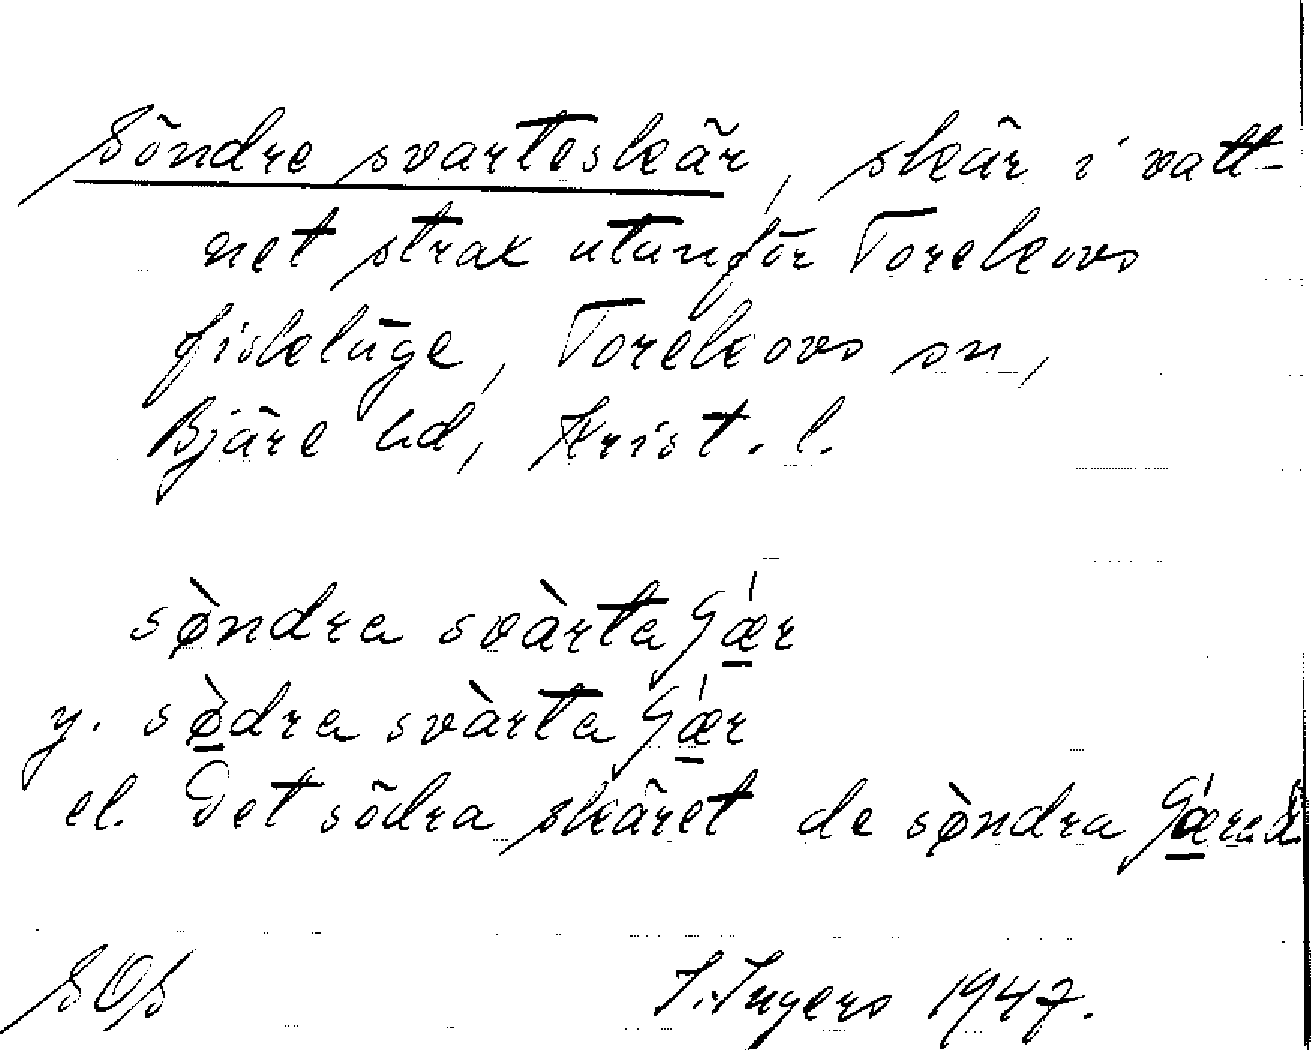 Söndre svarteskär, skär i vatt-
net strax utanför Torekovs
fiskeläge, Torekovs sn,
Bjäre hd, Krist. l.
sø̀ndra svàrta ʃǽr
y. sø̀dra svàrta ʃǽr
el. Det södra skäret de sø̀ndra
SOS
I. Ingers 1947.